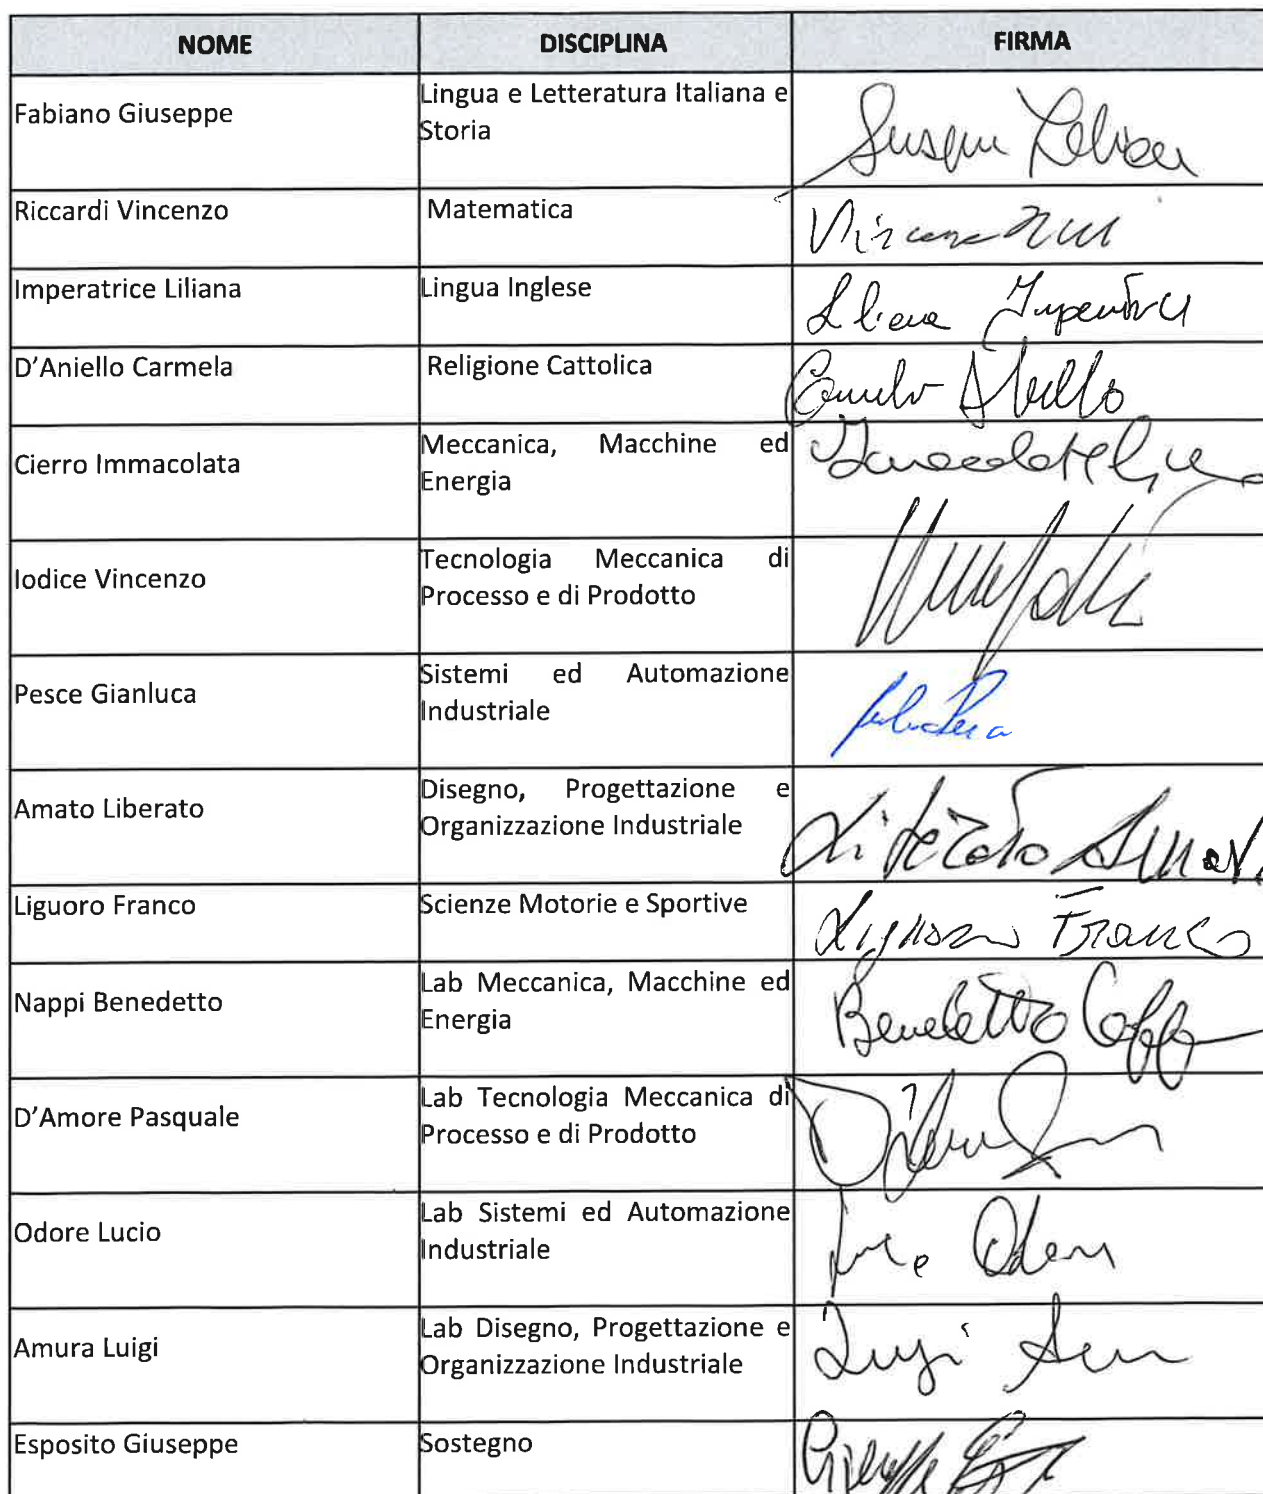 NOME DISCIPLINA FIRMA
Fabiano Giuseppe
Lingua e Letteratura Italiana e
Storia
Riccardi Vincenzo Matematica
Imperatrice Liliana Lingua Inglese
D'Aniello Carmela Religione Cattolica
Cierro Immacolata
Meccanica, Macchine ed
Energia
Iodice Vincenzo
Tecnologia Meccanica di
Processo e di Prodotto
Pesce Gianluca
Sistemi ed Automazione
Industriale
Amato Liberato
Disegno, Progettazione e
Organizzazione Industriale
Liberato
Liguoro Franco Scienze Motorie e Sportive Franco
Nappi Benedetto
Lab Meccanica, Macchine ed
Energia
Benedetto
D'Amore Pasquale
Lab Tecnologia Meccanica di
Processo e di Prodotto
Odore Lucio
Lab Sistemi ed Automazione
Industriale
Amura Luigi
Lab Disegno, Progettazione e
Organizzazione Industriale
Luigi
Esposito Giuseppe Sostegno